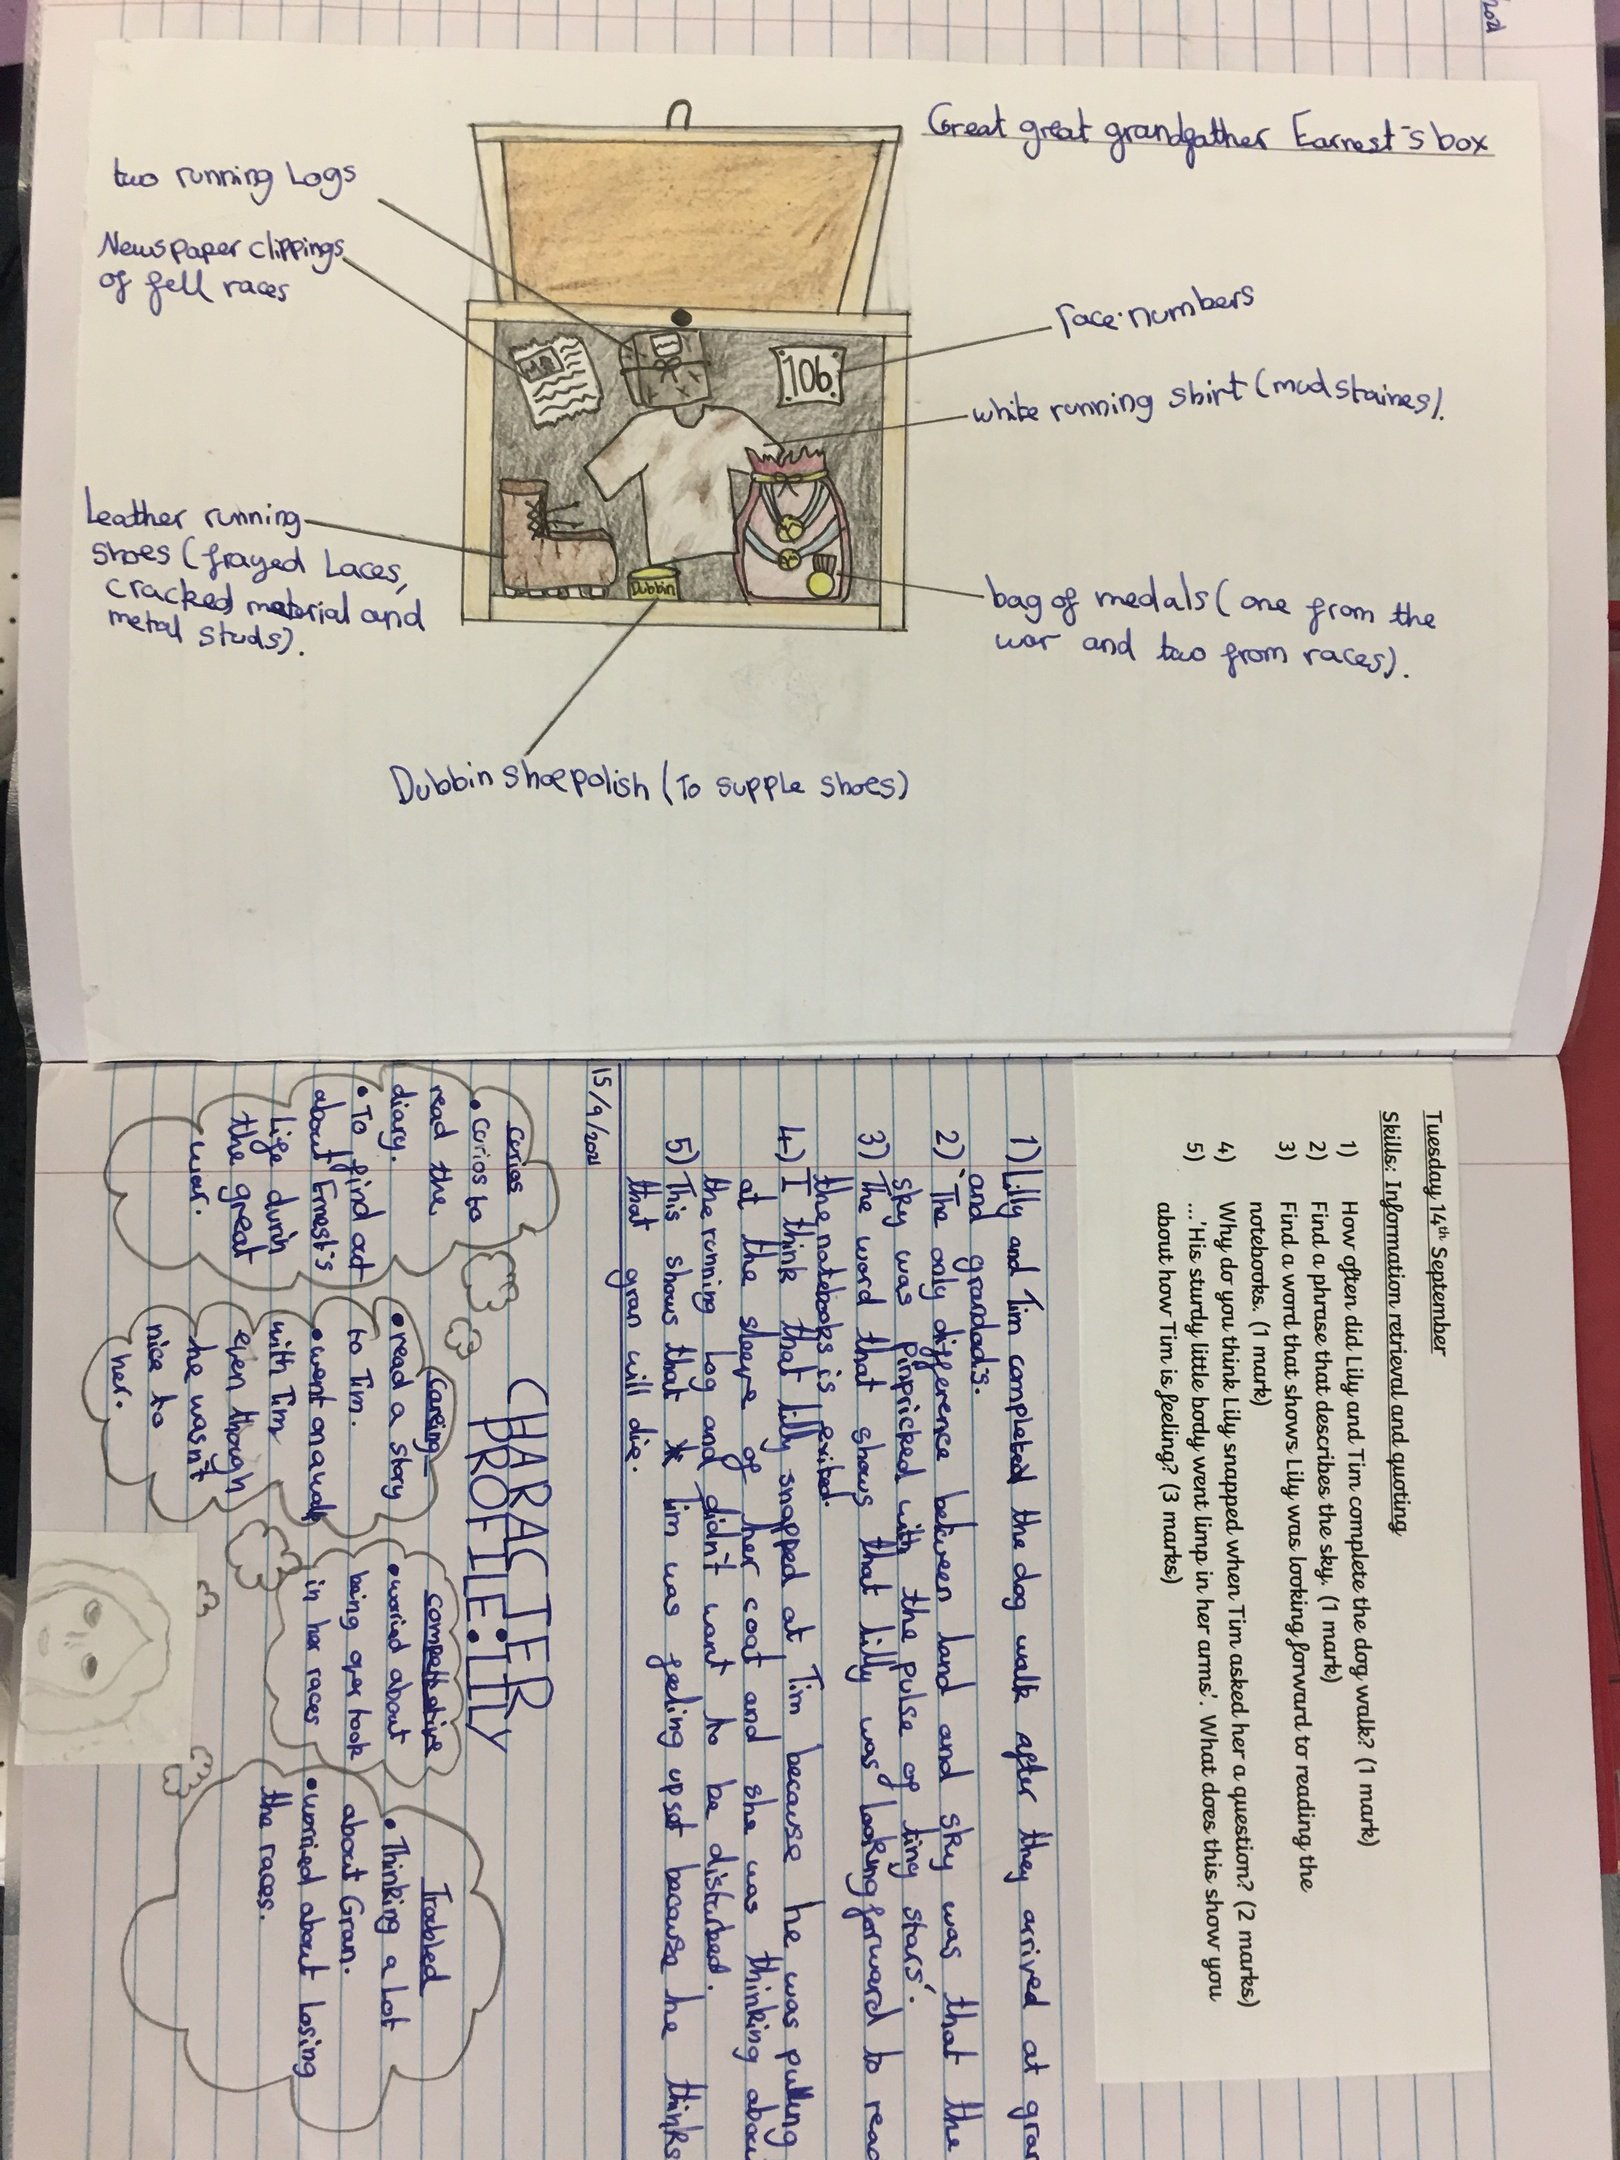 Great great grandfather Earnest's box
two running Logs
Newspaper clippings
of fell races
race numbers
white running shirt (mud staines).
106
Leather running
shoes (frayed Laces,
cracked material and
metal studs).
Dubbin
bag of medals (one from the
war and two from races).
Dubbin shoe polish (To supple shoes)
Tuesday 14th September
Skills: Information retrieval and quoting
1) How often did Lily and Tim complete the dog walk? (1 mark)
2) Find a phrase that describes the sky. (1 mark)
3) Find a word that shows Lily was looking forward to reading the
notebooks. (1 mark)
4) Why do you think Lily snapped when Tim asked her a question? (2 marks)
5) ...'His sturdy little body went limp in her arms'. What does this show you
about how Tim is feeling? (3 marks)
1) Lilly and Tim completed the dog walk after they arrived at gran
and grandad's.
2) 'The only difference between land and sky was that the
sky was pinpricked with the pulse of tiny stars'.
3) The word that shows that lilly was looking forward to read
the notebooks is exited.
4) I think that lilly snapped at Tim because he was pulling
at the sleeve of her coat and she was thinking abou
the running log and didn't want to be disturbed.
5) This shows that Tim was feeling upset because he thinks
that gran will die.
15/9/2021
CHARACTER
PROFILE: LILY
corios
• corios to
read the
diary.
• To find out
about Ernest's
life durin
the great
war.
careing
• read a story
to Tim.
• went on a walk
with Tim
even though
he wasn't
nice to
her.
compatative
• worried about
being over took
in her races
Trobled
• Thinking a lot
about Gran.
• worried about losing
the races.